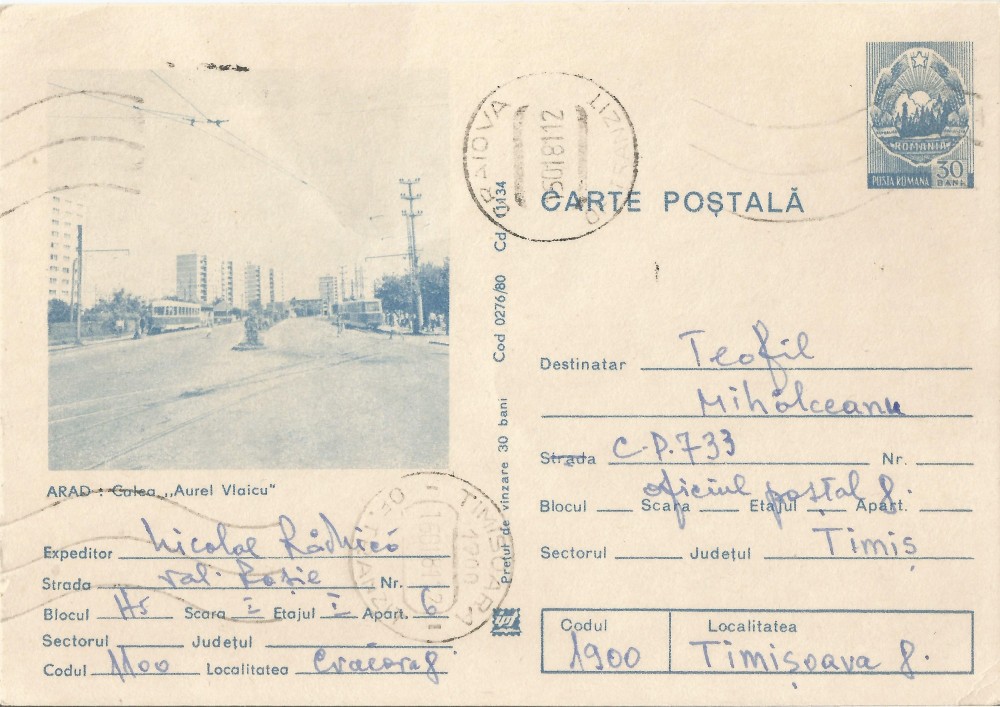 ROMANIA
POSTA ROMANA 30 BANI
CRAIOVA TRANZIT
CARTE POȘTALĂ
Prețul de vînzare 30 bani Cod 0276/80 Cd. 11134
ARAD : Calea ,,Aurel Vlaicu"
Destinatar Teofil
Mihălceanu
Strada C.P. 733 Nr.
oficiul poștal 8.
Blocul Scara Etajul Apart.
Sectorul Județul Timiș
Codul Localitatea
1900 Timișoara 8.
TIMISOARA 1900 OF. TRANZIT
Expeditor Nicolae
Strada Val. Roșie Nr.
Blocul H5 Scara I Etajul I Apart. 6
Sectorul Județul
Codul 1100 Localitatea Craiova 8